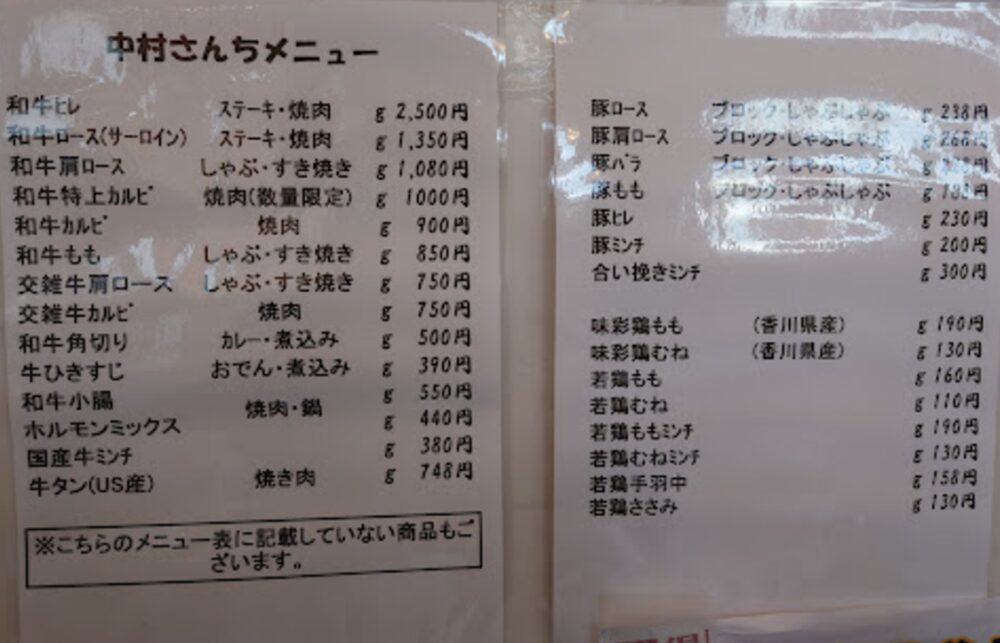 中村さんちメニュー
和牛ﾋﾚ ステーキ・焼肉 g 2,500円
和牛ロース(サーロイン) ステーキ・焼肉 g 1,350円
和牛肩ロース しゃぶ・すき焼き g 1,080円
和牛特上カルビ 焼肉(数量限定) g 1000円
和牛カルビ 焼肉 g 900円
和牛もも しゃぶ・すき焼き g 850円
交雑牛肩ロース しゃぶ・すき焼き g 750円
交雑牛カルビ 焼肉 g 750円
和牛角切り カレー・煮込み g 500円
牛ひきすじ おでん・煮込み g 390円
和牛小腸 焼肉・鍋 g 550円
ホルモンミックス g 440円
国産牛ﾐﾝﾁ g 380円
牛タン(US産) 焼き肉 g 748円
※こちらのメニュー表に記載していない商品もご
ざいます。
豚ロース ブロック・しゃぶしゃぶ g 238円
豚肩ロース ブロック・しゃぶしゃぶ g 268円
豚バラ ブロック・しゃぶしゃぶ g
豚もも ブロック・しゃぶしゃぶ g
豚ﾋﾚ g 230円
豚ﾐﾝﾁ g 200円
合い挽きﾐﾝﾁ g 300円
味彩鶏もも (香川県産) g 190円
味彩鶏むね (香川県産) g 130円
若鶏もも g 160円
若鶏むね g 110円
若鶏ももﾐﾝﾁ g 190円
若鶏むねﾐﾝﾁ g 130円
若鶏手羽中 g 158円
若鶏ささみ g 130円